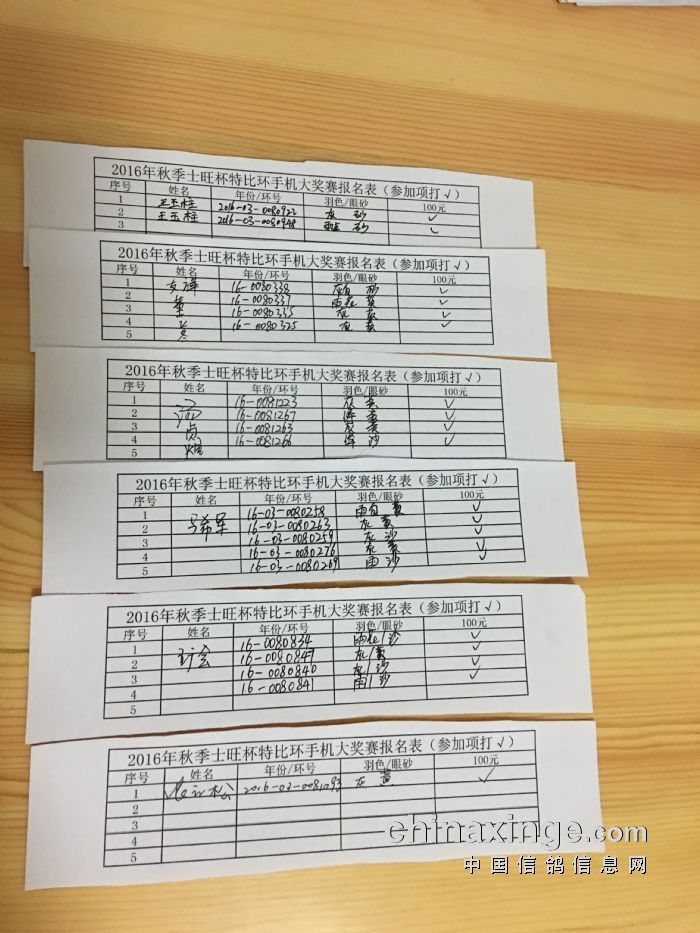 2016年秋季士旺杯特比环手机大奖赛报名表（参加项打√）
序号 姓名 年份/环号 羽色/眼砂 100元
1 王玉柱 2016-03-0080922 灰 砂 √
2 王玉柱 2016-03-0080948 砂 √
3
2016年秋季士旺杯特比环手机大奖赛报名表（参加项打√）
序号 姓名 年份/环号 羽色/眼砂 100元
1 16-0080338 砂 √
2 16-0080337 雨花 黄 √
3 16-0080335 灰 黄 √
4 16-0080325 灰 黄 √
5
2016年秋季士旺杯特比环手机大奖赛报名表（参加项打√）
序号 姓名 年份/环号 羽色/眼砂 100元
1 16-0081223 灰 黄 √
2 16-0081267 黄 √
3 贞 16-0081263 黄 √
4 16-0081266 沙 √
5
2016年秋季士旺杯特比环手机大奖赛报名表（参加项打√）
序号 姓名 年份/环号 羽色/眼砂 100元
1 马希军 16-03-0080258 雨白 黄 √
2 16-03-0080263 灰 黄 √
3 16-03-0080259 灰 沙 √
4 16-03-0080276 灰 黄 √
5 16-03-0080269 雨 沙 √
2016年秋季士旺杯特比环手机大奖赛报名表（参加项打√）
序号 姓名 年份/环号 羽色/眼砂 100元
1 16-0080834 雨花/沙 √
2 16-0080847 灰/黄 √
3 16-0080840 灰/沙 √
4 16-0080841 雨/沙 √
5
2016年秋季士旺杯特比环手机大奖赛报名表（参加项打√）
序号 姓名 年份/环号 羽色/眼砂 100元
1 松 2016-03-0081093 灰 黄 √
2
3
4
5
chinaxinge.com
中国信鸽信息网